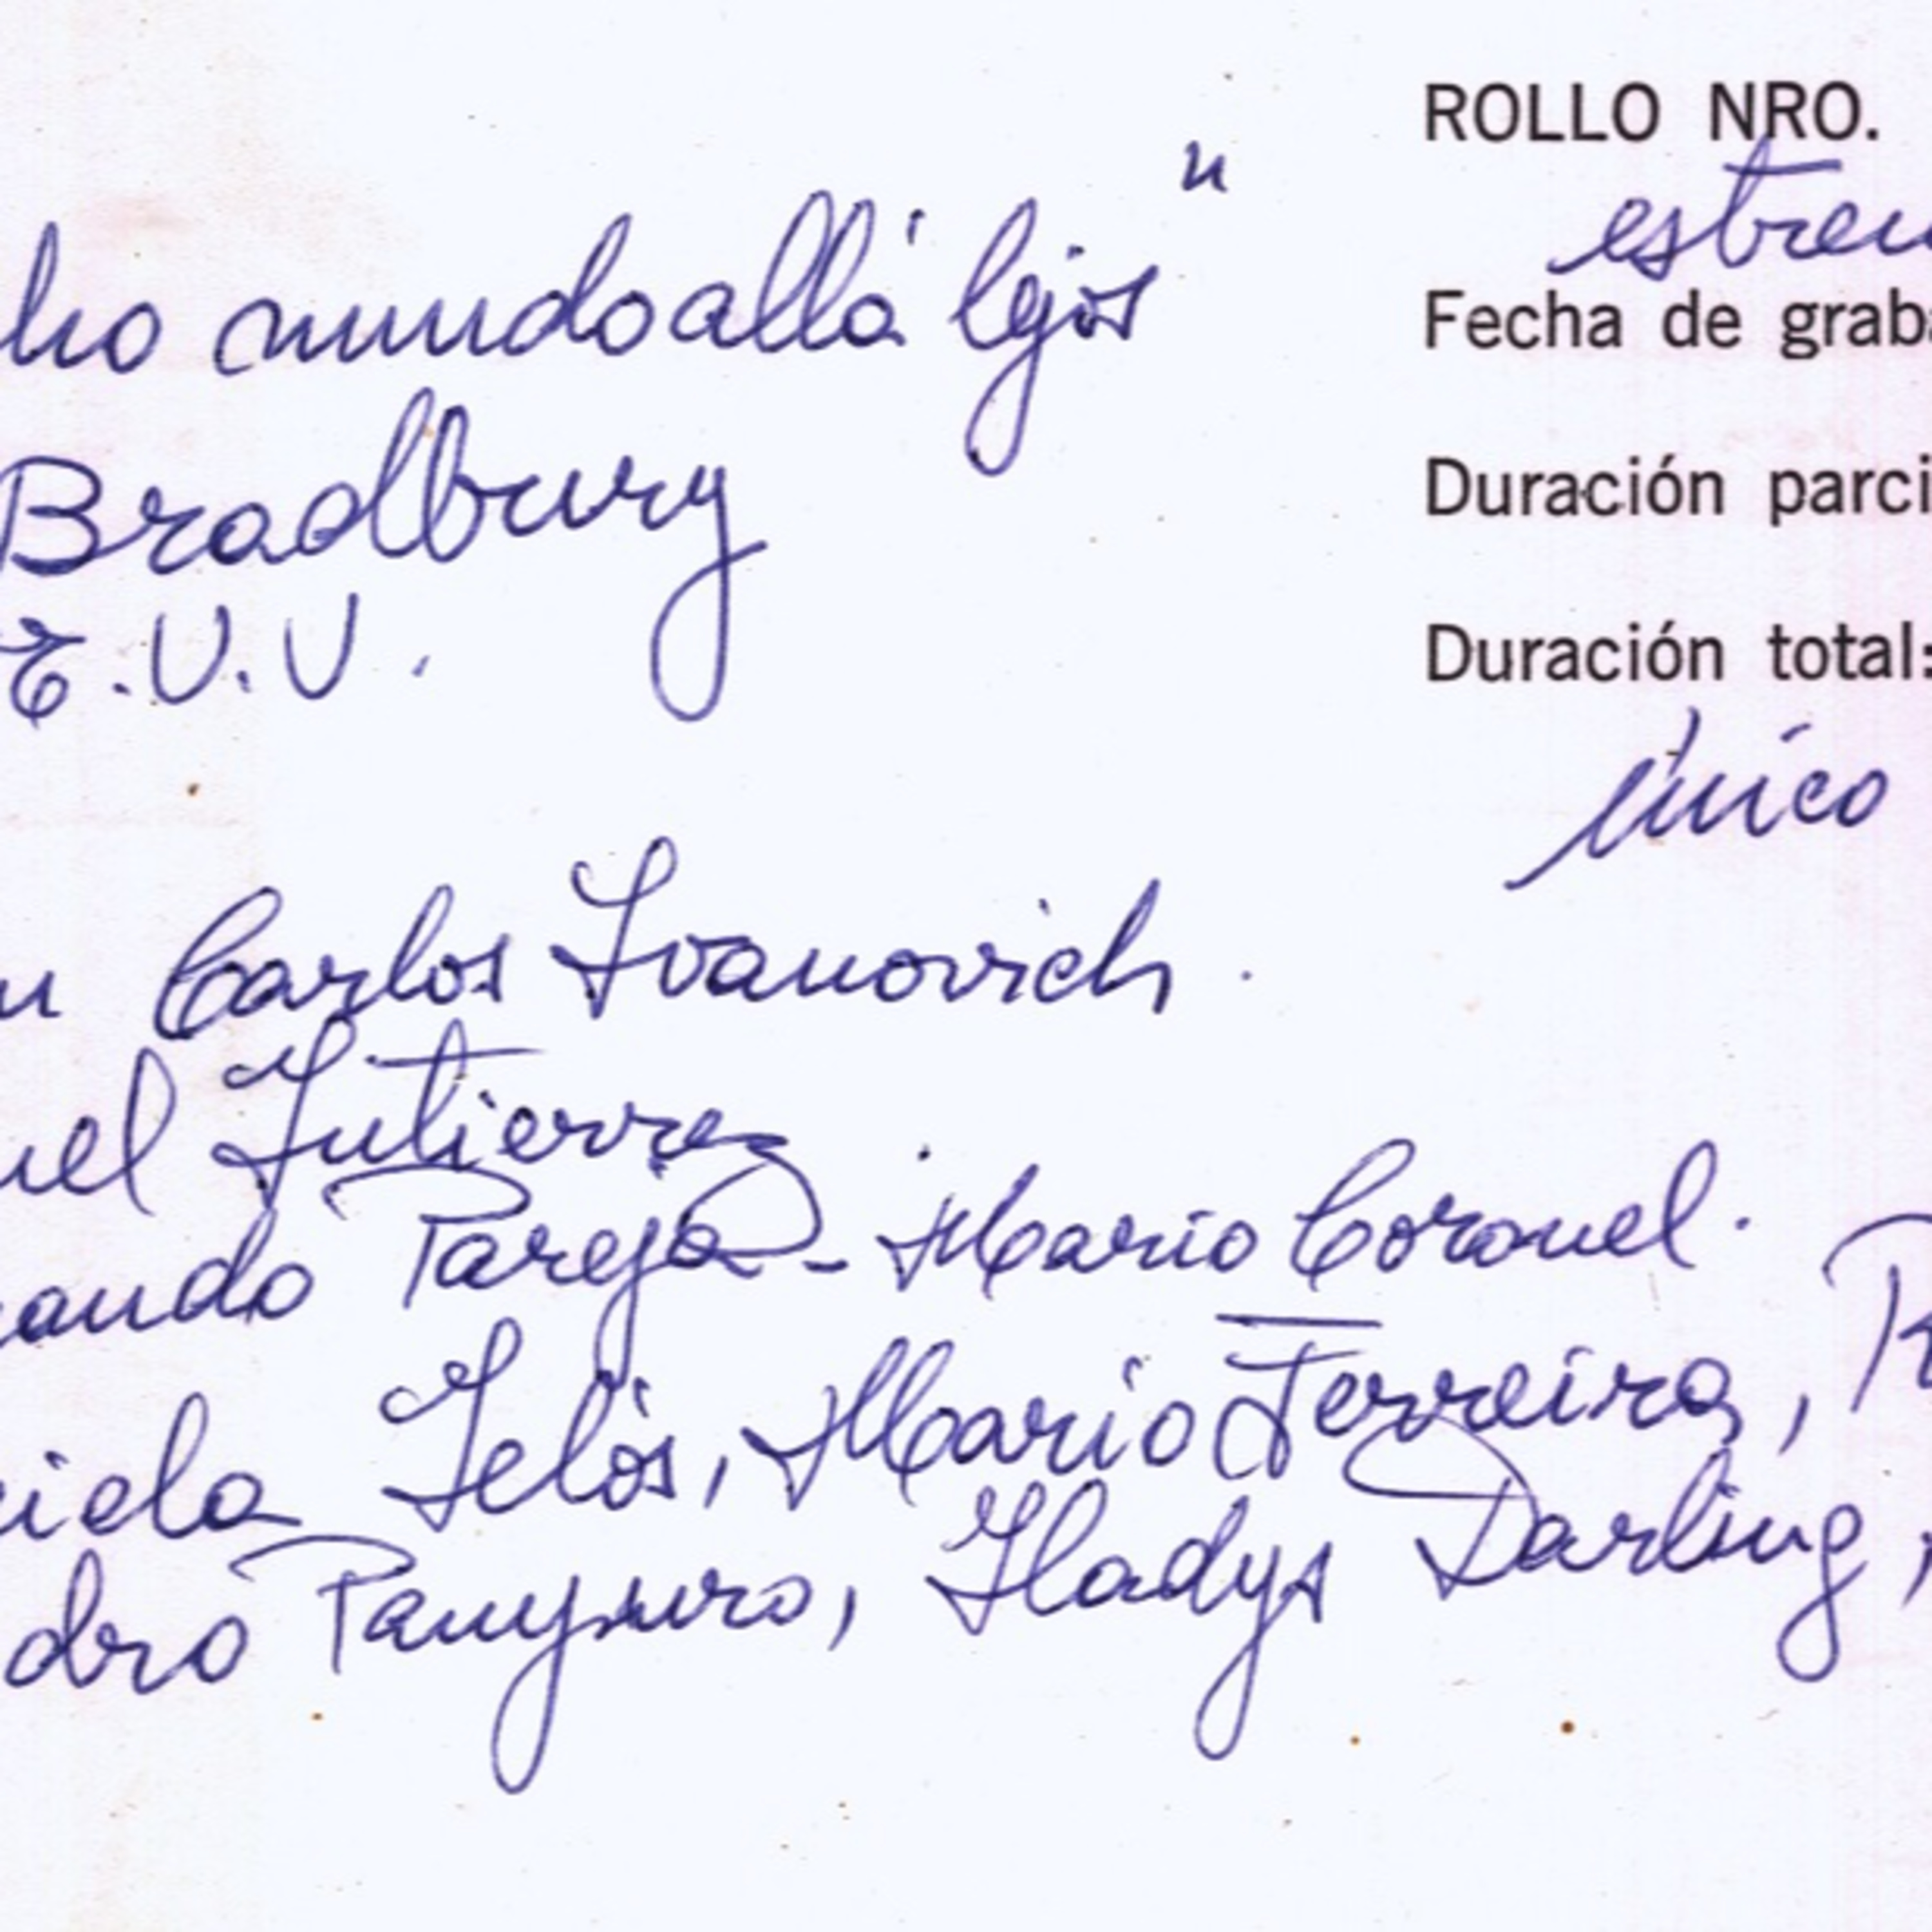 ROLLO NRO.
estren
cho mundo allá lejos"
Fecha de graba
Bradbury
Duración parci
E.U.U.
Duración total:
único
n Carlos Ivanovich.
uel Gutierrez
ando Pareja - Mario Coronel.
ciela Gelós, Mario Ferreira, R
dro Gladys Darling,